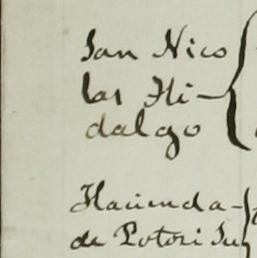 San Nico
las Hi-
dalgo
Hacienda-
de Potosi Su